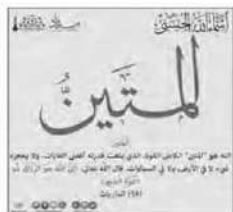 أسماء الله الحسنى
المتين
المتين
الله هو "المتين" الكامل القوة، الذي بلغت قدرته أقصى الغايات، ولا يعجزه
شيء لا في الأرض ولا في السماوات. قال الله تعالى: إن الله هو الرزاق ذو
القوة المتين
(58) الذاريات